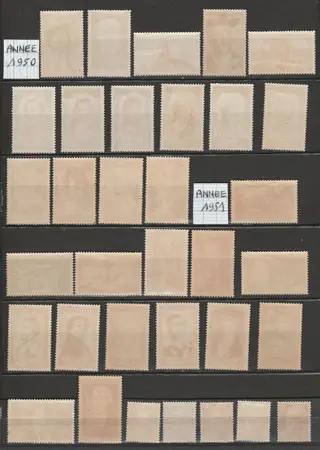 ANNÉE
1950
ANNÉE
1951